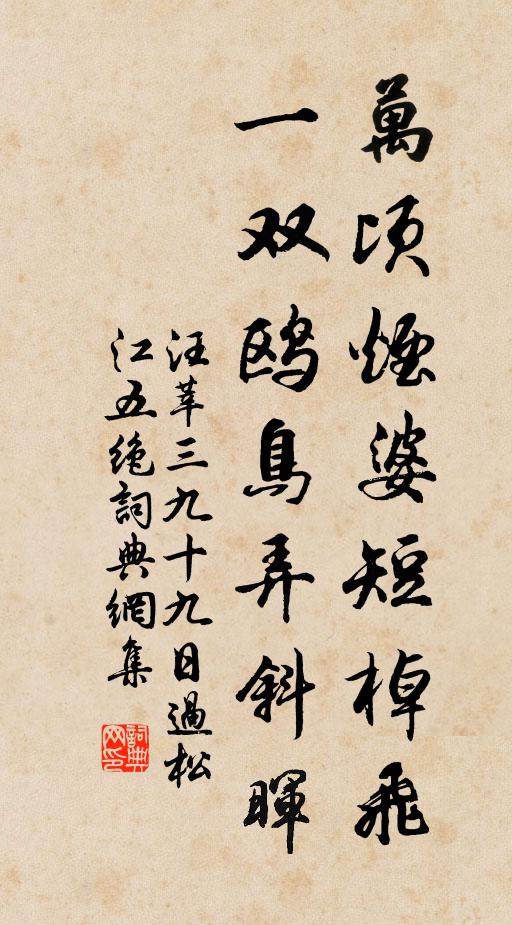 萬頃煙婆短棹飛
一双鸥鳥弄斜暉
汪莘三九十九日過松
江五絶詞典網集
詞典网印